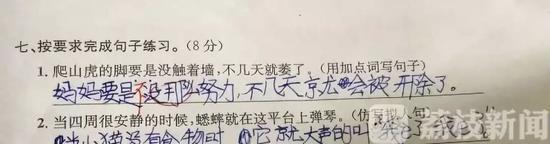 七、按要求完成句子练习。(8分)
1. 爬山虎的脚要是没触着墙,不几天就萎了。(用加点词写句子)
妈妈要是没用努力,不几天就会被开除了。
2. 当四周很安静的时候,蟋蟀就在这平台上弹琴。(仿写 句)
当小猫没有食物时,它就大声的叫
荔枝新闻